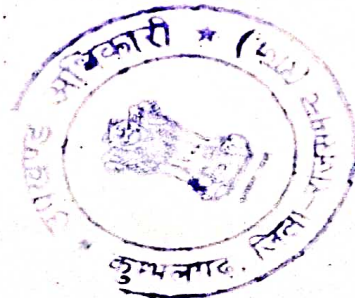 उपखण्ड अधिकारी ★ (राज)
कुम्भलगढ. जिला-राजसमन्द